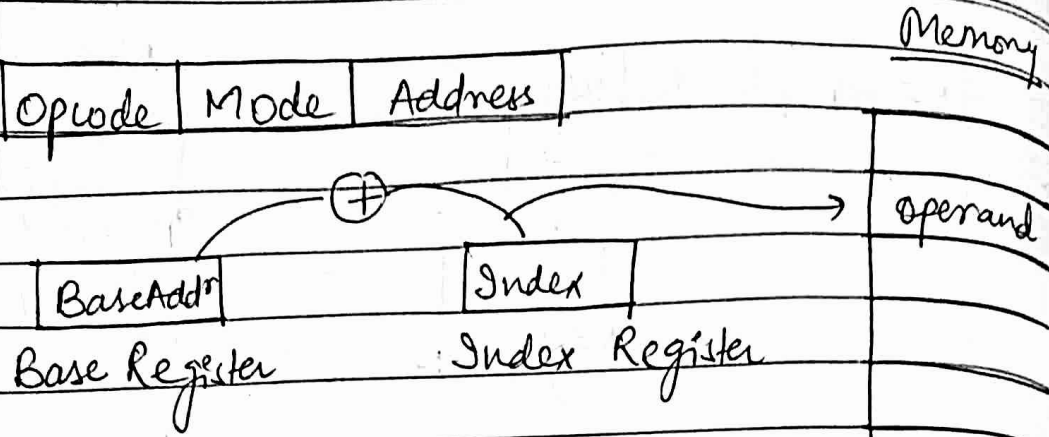 Memory
Opcode Mode Address
+
operand
BaseAddr Index
Base Register Index Register